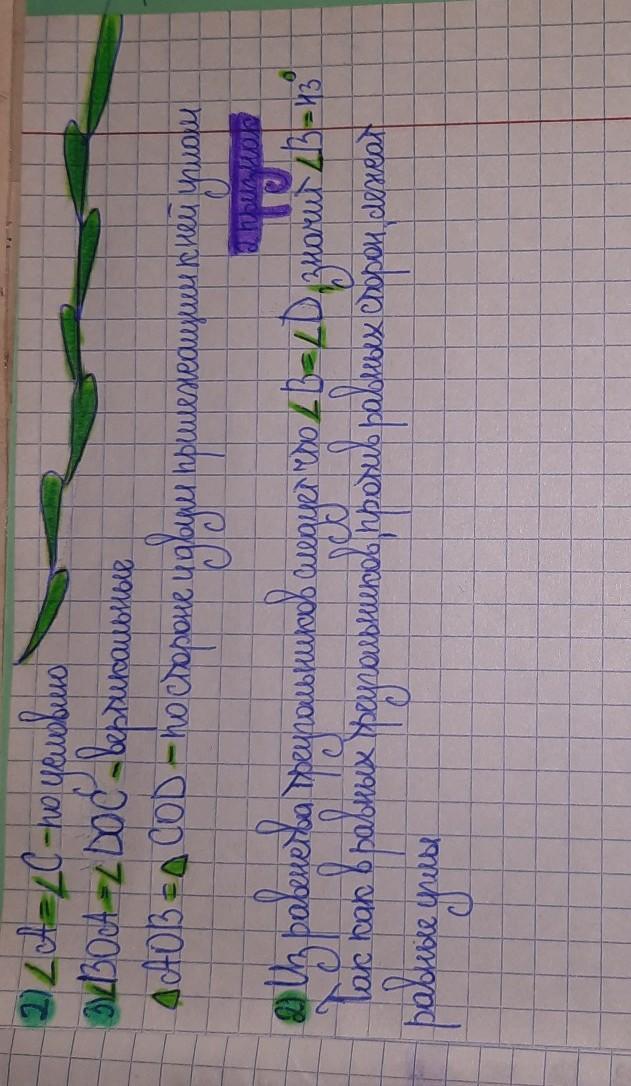 2) ∠A=∠C-по условию
3) ∠BOA=∠DOC-вертикальные
△AOB=△COD-по стороне и двум прилежащим к ней углам
2 признак
2) Из равенства треугольников следует что ∠B=∠D, значит ∠B=43°
Так как в равных треугольников, против равных сторон, лежат
равные углы